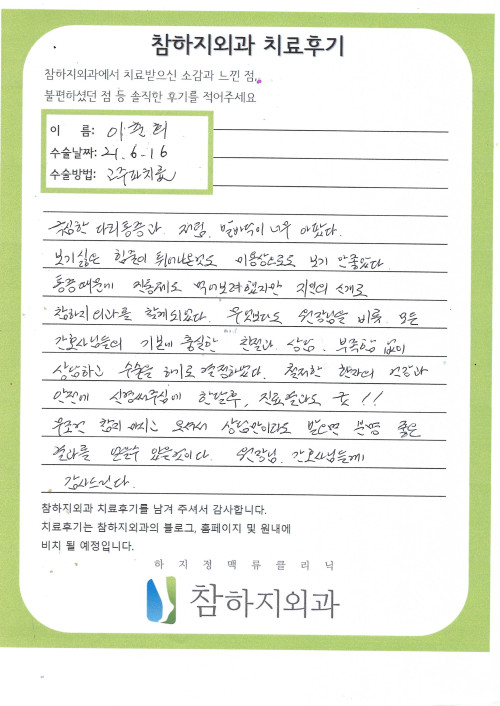 참하지외과 치료후기
참하지외과에서 치료받으신 소감과 느낀 점,
불편하셨던 점 등 솔직한 후기를 적어주세요
이 름: 이 희
수술날짜: 21. 6. 16
수술방법: 고주파치료
극심한 다리통증과 저림, 발바닥이 너무 아팠다.
보기싫은 힘줄이 튀어나온것도 미용상으로도 보기 안좋았다
통증때문에 진통제도 먹어보려 했지만 지인의 소개로
참하지외과를 찾게되었다. 무엇보다도 원장님을 비롯 모든
간호사님들의 기본에 충실한 친절과 상담, 부족함 없이
상담하고 수술을 하기로 결정하였다. 철저한 환자의 건강과
안전에 신경써주심에 한달후, 진료결과도 굿!!
무조건 참지 마시고 오셔서 상담만이라도 받으면 분명 좋은
결과를 만들수 있을것이다. 원장님, 간호사님들께
감사드린다.
참하지외과 치료후기를 남겨 주셔서 감사합니다.
치료후기는 참하지외과의 블로그, 홈페이지 및 원내에
비치 될 예정입니다.
하지정맥류클리닉
참하지외과